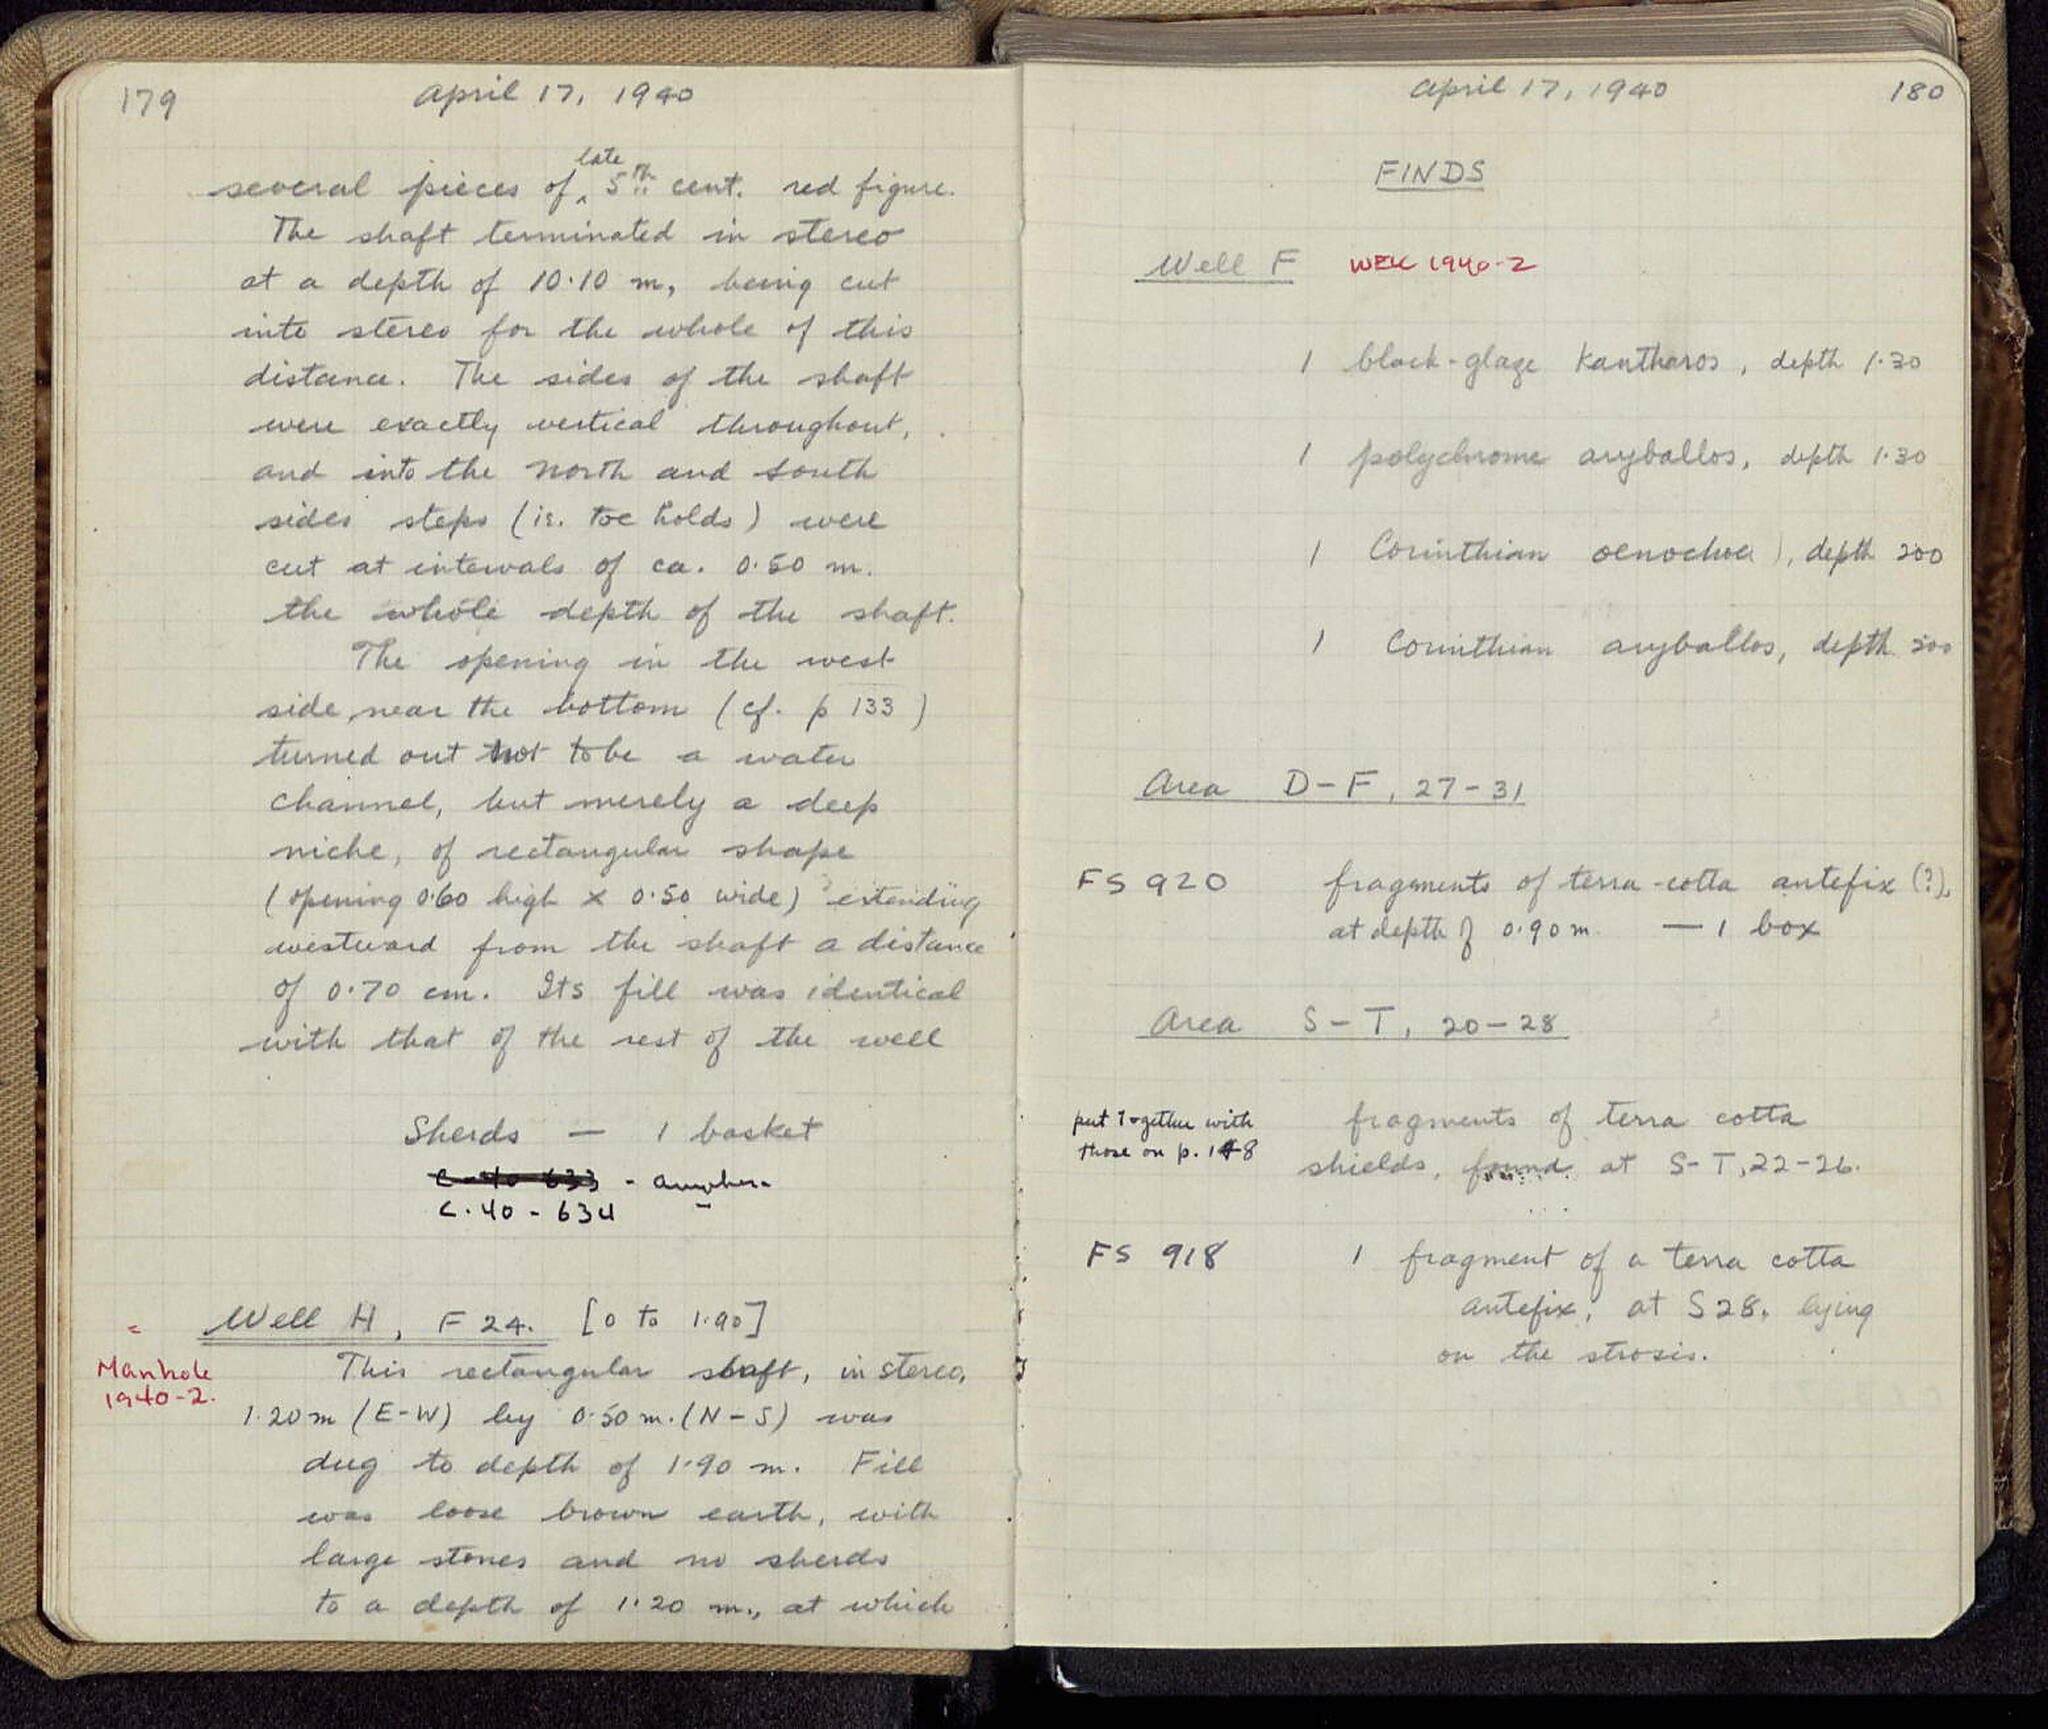 179
April 17, 1940
late
several pieces of ‸ 5th cent. red figure.
The shaft terminated in stereo
at a depth of 10.10 m, being cut
into stereo for the whole of this
distance. The sides of the shaft
were exactly vertical throughout,
and into the north and south
sides steps (ie. toe holds) were
cut at intervals of ca. 0.50 m.
the whole depth of the shaft.
The opening in the west
side, near the bottom (cf. p 133)
turned out not to be a water
channel, but merely a deep
niche, of rectangular shape
(opening 0.60 high x 0.50 wide) extending
westward from the shaft a distance
of 0.70 cm. Its fill was identical
with that of the rest of the well
Sherds — 1 basket
C-40-633 - amphora
C.40-634
Well H, F 24. [0 to 1.90]
= Manhole
1940-2.
This rectangular shaft, in stereo,
1.20 m (E-W) by 0.50 m. (N-S) was
dug to depth of 1.90 m. Fill
was loose brown earth, with
large stones and no sherds
to a depth of 1.20 m., at which
April 17, 1940
180
FINDS
Well F WELL 1940-2
1 black-glaze Kantharos, depth 1.30
1 polychrome aryballos, depth 1.30
1 Corinthian oenochoe, depth 200
1 Corinthian aryballos, depth 200
Area D-F, 27-31
FS 920 fragments of terra-cotta antefix (?),
at depth of 0.90 m. — 1 box
Area S-T, 20-28
put together with
those on p. 148
fragments of terra cotta
shields, found at S-T, 22-26.
FS 918 1 fragment of a terra cotta
antefix, at S 28, lying
on the strosis.